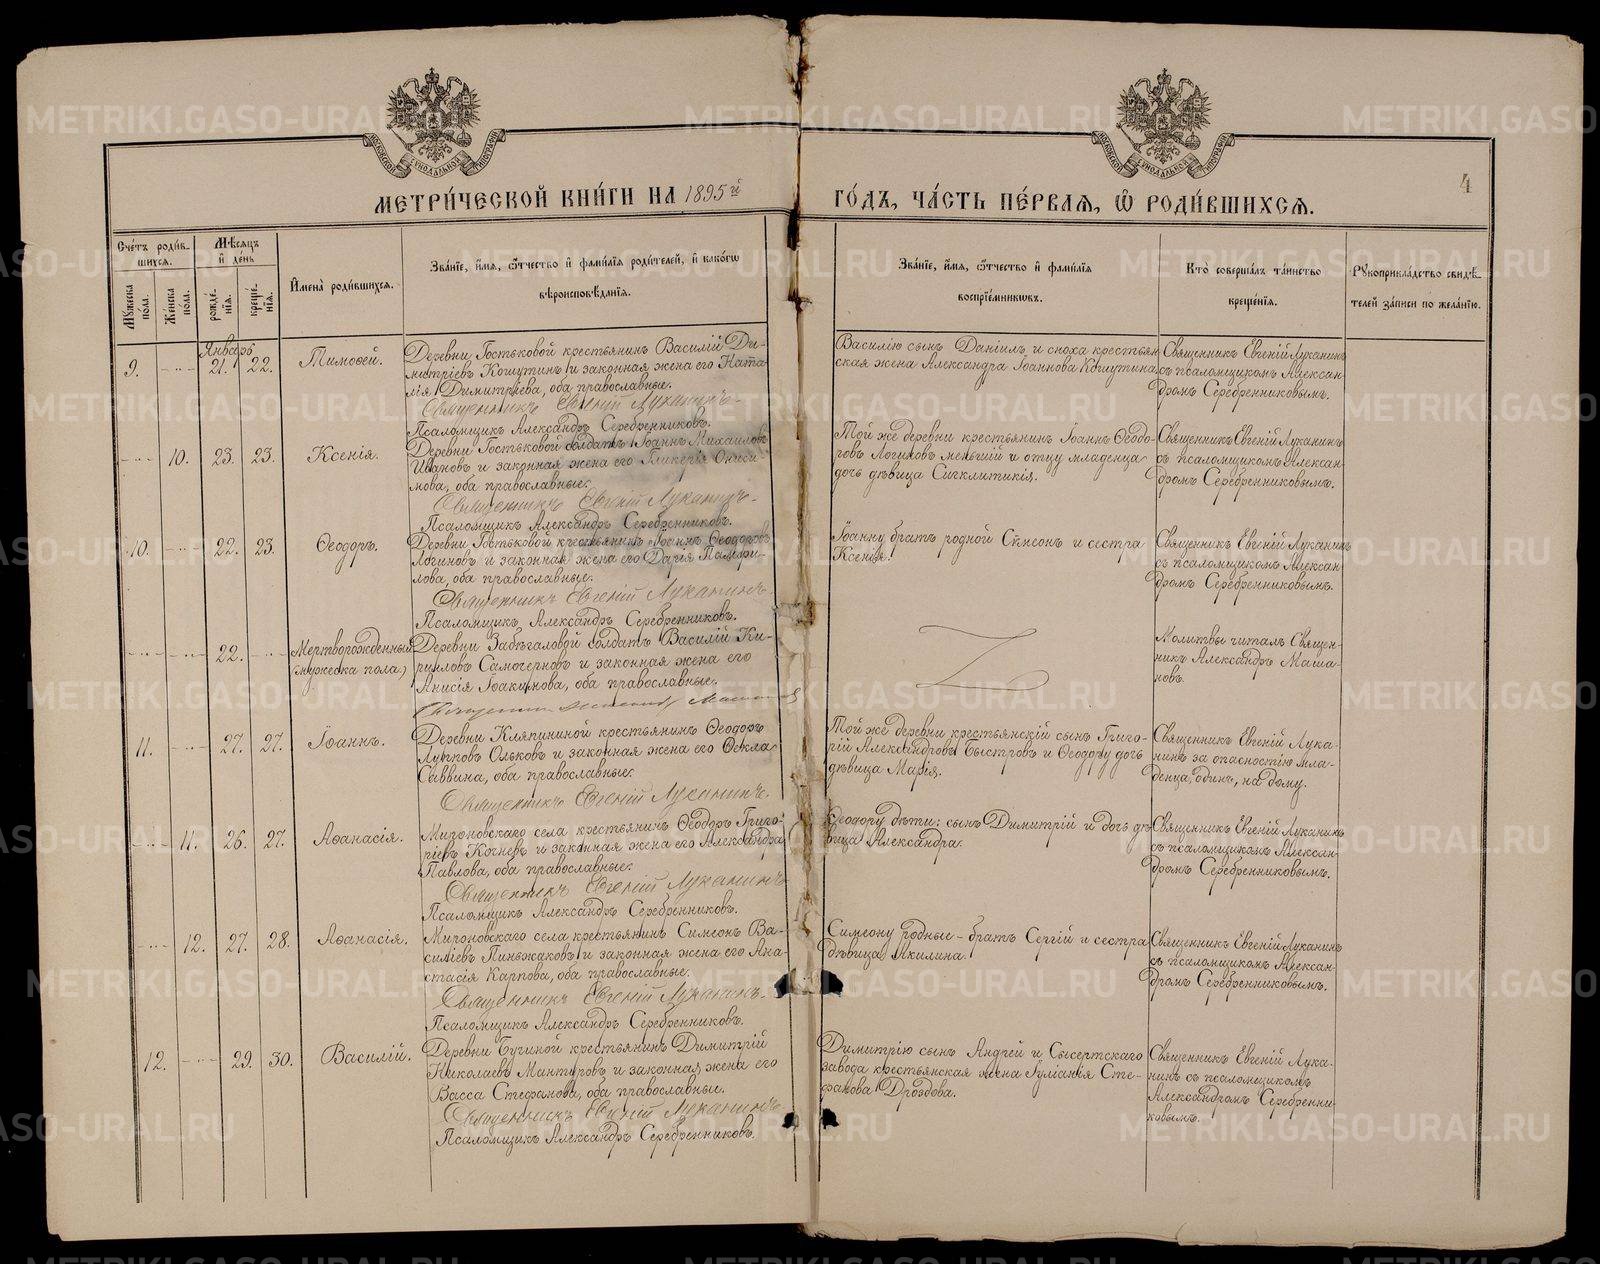 МОСКОВСКОЙ СѴНОДАЛЬНОЙ ТИПОГРАФІИ
МОСКОВСКОЙ СѴНОДАЛЬНОЙ ТИПОГРАФІИ
4
МЕТРИ́ЧЕСКОЙ КНИ́ГИ НА 1895й
ГО́ДЪ, ЧА́СТЬ ПЕ́РВАѦ, Ѡ РОДИ́ВШИХСѦ.
Сче́тъ роди́в-
шихсѧ.
Мꙋжеска по́ла.
Же́нска по́ла.
Мѣ́сѧцъ
и де́нь
рожде́нїѧ.
креще́нїѧ.
Имена̀ роди́вшихсѧ.
Зва́нїе, и́мѧ, ѻ҆́тчество и фами́лїѧ роди́телей, и како́гѡ
вѣроисповѣ́данїѧ.
Зва́нїе, и́мѧ, ѻ҆́тчество и фами́лїѧ
воспрїе́мникѡвъ.
Кто̀ соверша́лъ та́инство
креще́нїѧ.
Рꙋкоприкла́дство свидѣ́-
телей за́писи по жела́нїю.
Январь
9. -"- 21. 22. Тимоѳей.
Деревни Гостьковой крестьянинъ Василій Ди-
митріевъ Кошутинъ и законная жена его Ната-
лія Димитріева, оба православные.
Священникъ Евгеній Луканинъ.
Псаломщикъ Александръ Серебренниковъ.
Василію сынъ Даніилъ и сноха крестьян
ская жена Александра Іоаннова Кошутина
Священникъ Евгеній Луканинъ
съ псаломщикомъ Алексан-
дромъ Серебренниковымъ.
-"- 10. 23. 23. Ксенія.
Деревни Гостьковой солдатъ Іоаннъ Михаиловъ
Ивановъ и законная жена его Гликерія Ониси-
мова, оба православные.
Священникъ Евгеній Луканинъ.
Псаломщикъ Александръ Серебренниковъ.
Той же деревни крестьянинъ Іоаннъ Ѳеодо-
ровъ Логиновъ меньшій и отцу младенца
дочь дѣвица Сигклитикія.
Священникъ Евгеній Луканинъ
съ псаломщикомъ Алексан-
дромъ Серебренниковымъ.
10. -"- 22. 23. Ѳеодоръ.
Деревни Гостьковой крестьянинъ Іоаннъ Ѳеодоровъ
Логиновъ и законная жена его Дарія Памфи-
лова, оба православные.
Священникъ Евгеній Луканинъ
Псаломщикъ Александръ Серебренниковъ.
Іоанну братъ родной Симеонъ и сестра
Ксенія.
Священникъ Евгеній Луканинъ
съ псаломщикомъ Алексан-
дромъ Серебренниковымъ.
-"- -"- 22. -"- Мертворожденный
(мужеска пола)
Деревни Забѣгаловой солдатъ Василій Ки-
рилловъ Самочерновъ и законная жена его
Анисія Іоакимова, оба православные.
Молитвы читалъ Священ-
никъ Александръ Маша-
новъ.
11. -"- 27. 27. Іоаннъ.
Деревни Кляпининой крестьянинъ Ѳеодоръ
Ольковъ и законная жена его Ѳекла
Саввина, оба православные.
Священникъ Евгеній Луканинъ.
Той же деревни крестьянскій сынъ Григо-
рій Александровъ Быстровъ и Ѳеодору дочь
дѣвица Марія.
Священникъ Евгеній Лука-
нинъ за опасностію мла-
денца, одинъ, на дому.
-"- 11. 26. 27. Аѳанасія.
Мироновскаго села крестьянинъ Ѳеодоръ Григо-
ріевъ Кочневъ и законная жена его Александра
Павлова, оба православные.
Священникъ Евгеній Луканинъ
Псаломщикъ Александръ Серебренниковъ.
Ѳеодору дѣти: сынъ Димитрій и дочь дѣ-
вица Александра.
Священникъ Евгеній Луканинъ
съ псаломщикомъ Алексан-
дромъ Серебренниковымъ.
-"- 12. 27. 28. Аѳанасія.
Мироновскаго села крестьянинъ Симеонъ Ва-
силіевъ Пинжаковъ и законная жена его Ана-
стасія Карпова, оба православные.
Священникъ Евгеній Луканинъ.
Псаломщикъ Александръ Серебренниковъ.
Симеону родные - братъ Сергій и сестра
дѣвица Акилина.
Священникъ Евгеній Луканинъ
съ псаломщикомъ Алексан-
дромъ Серебренниковымъ.
12. -"- 29. 30. Василій.
Деревни Бучиной крестьянинъ Димитрій
Николаевъ Мантуровъ и законная жена его
Васса Стефанова, оба православные.
Священникъ Евгеній Луканинъ
Псаломщикъ Александръ Серебренниковъ.
Димитрію сынъ Андрей и Сысертскаго
завода крестьянская жена Іуліанія Сте-
фанова Дроздова.
Священникъ Евгеній Лука-
нинъ съ псаломщикомъ
Александромъ Серебренни-
ковымъ.
METRIKI.GASO-URAL.RU